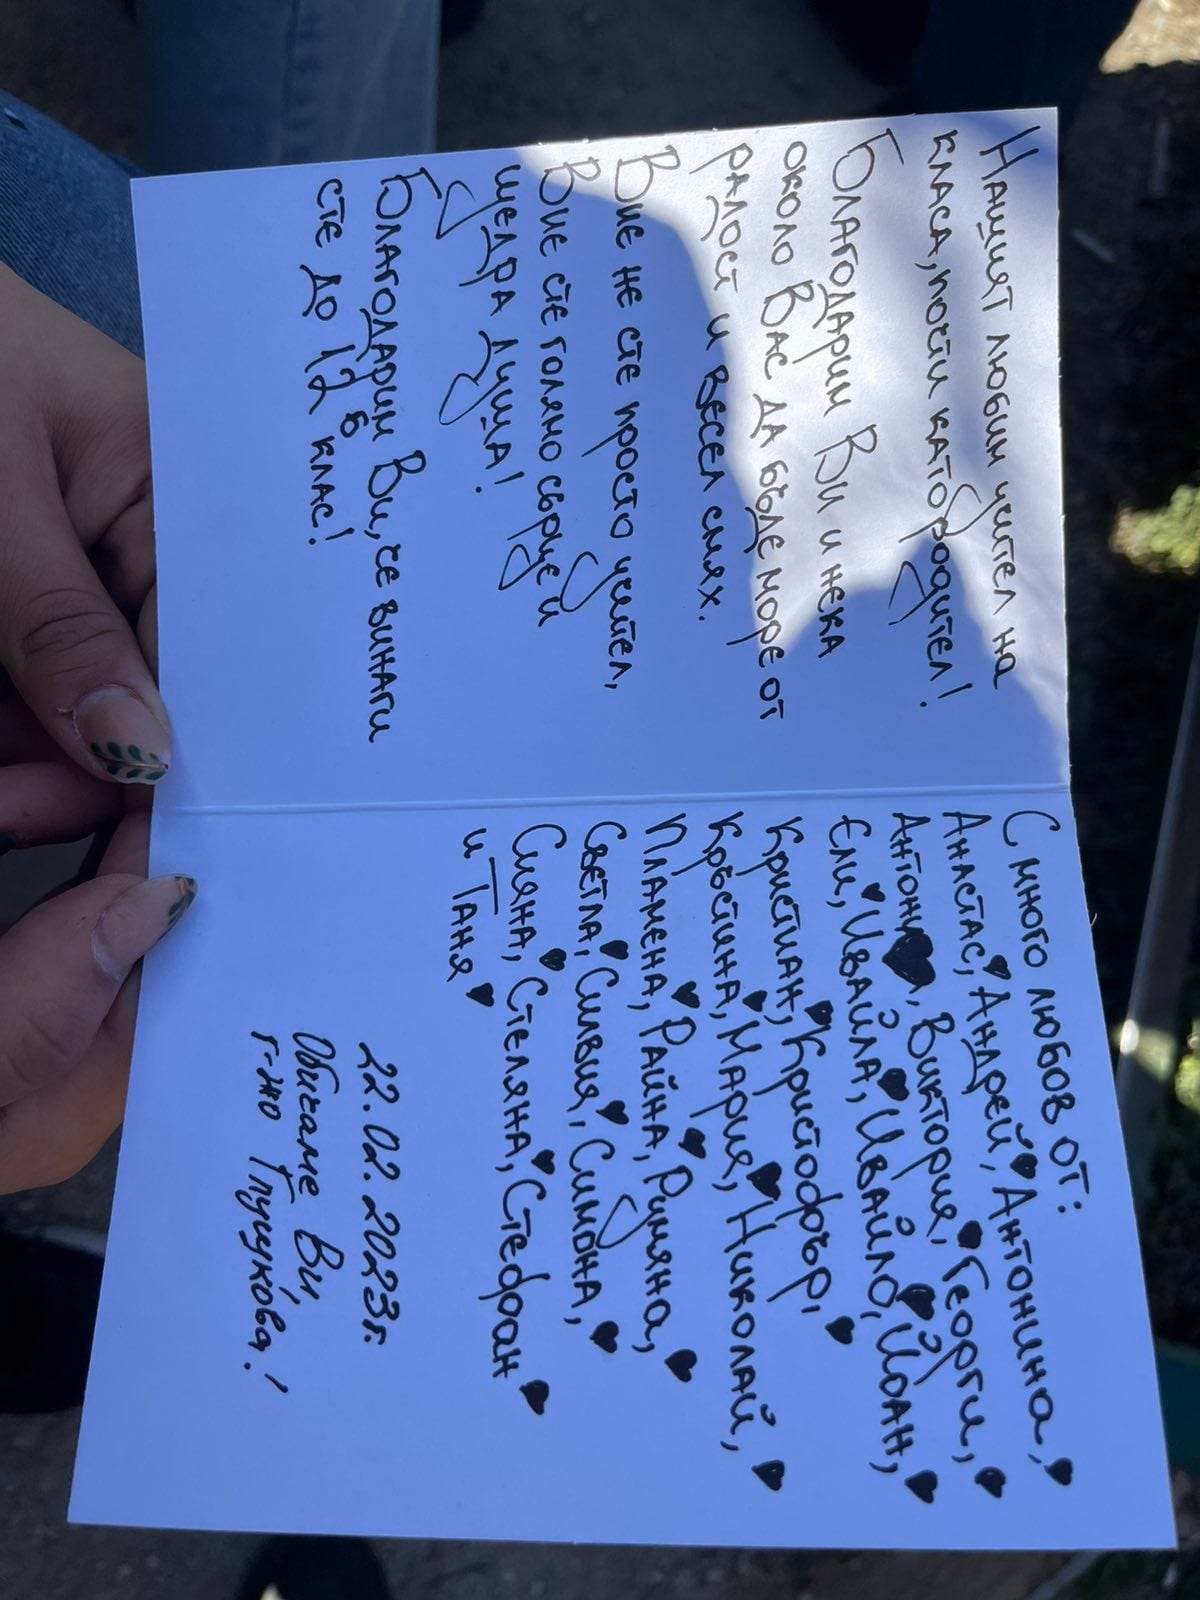 Нашият любим учител на
класа, почти като родител!
Благодарим Ви и нека
около Вас да бъде море от
радост и весел смях.
Вие не сте просто учител,
Вие сте голямо сърце и
щедра душа!
Благодарим Ви, че винаги
сте до 12 б клас!
С много любов от:
Анастас, Андрей, Антонина,
Антони, Виктория, Георги,
Ели, Ивайла, Ивайло, Йоан,
Кристиан, Кристофър,
Кръстина, Мария, Николай,
Пламена, Райна, Румяна,
Светла, Силвия, Симона,
Сияна, Стеляна, Стефан
и Таня
22.02.2023г.
Обичаме Ви,
г-жо Глушкова!